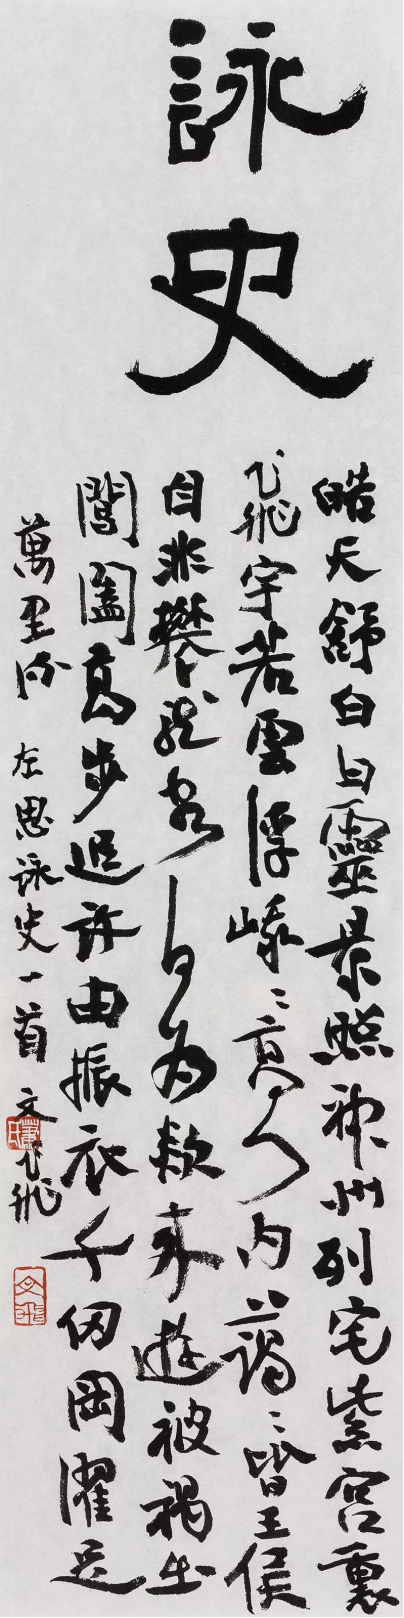 詠史
皓天舒白日靈景照神州列宅紫宮裏
飛宇若雲浮峨〻高門內藹〻皆王侯
自非攀龍客何為欻來遊被褐出
閶闔高步追許由振衣千仞岡濯足
萬里流 左思詠史一首 文飛
文飛